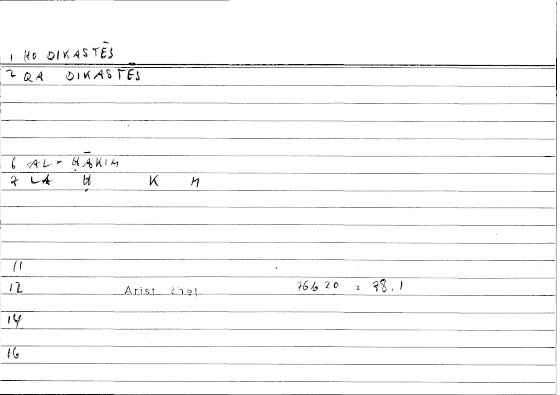 1 HO DIKASTĒS
2 QA DIKASTĒS
6 AL-ḤĀKIM
7 LA Ḥ K M
11
12 Arist Rhet 76b20 = 78.1
14
16